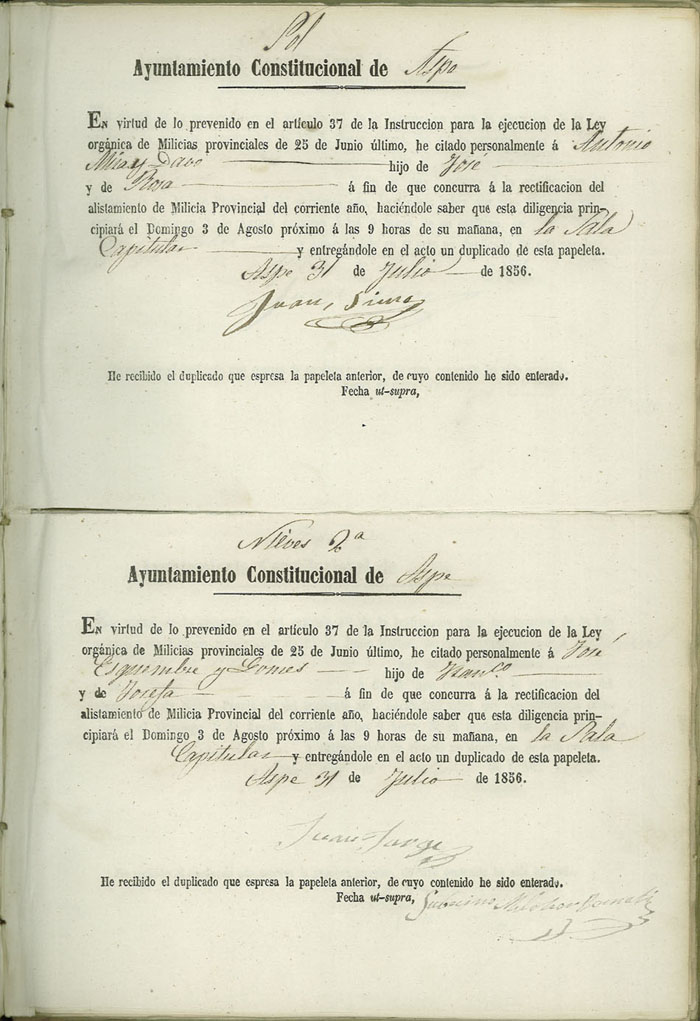 Pol
Ayuntamiento Constitucional de Aspe
En virtud de lo prevenido en el artículo 37 de la Instruccion para la ejecucion de la Ley
orgánica de Milicias provinciales de 25 de Junio último, he citado personalmente á Antonio
y Davo hijo de José
y de Rosa á fin de que concurra á la rectificacion del
alistamiento de Milicia Provincial del corriente año, haciéndole saber que esta diligencia prin-
cipiará el Domingo 3 de Agosto próximo á las 9 horas de su mañana, en la Sala
Capitular y entregándole en el acto un duplicado de esta papeleta.
Aspe 31 de Julio de 1856.
Juan
He recibido el duplicado que espresa la papeleta anterior, de cuyo contenido he sido enterado.
Fecha ut-supra,
Nieves 2a
Ayuntamiento Constitucional de Aspe
En virtud de lo prevenido en el artículo 37 de la Instruccion para la ejecucion de la Ley
orgánica de Milicias provinciales de 25 de Junio último, he citado personalmente á José
Esquembre y Gomes hijo de Franco
y de Josefa á fin de que concurra á la rectificacion del
alistamiento de Milicia Provincial del corriente año, haciéndole saber que esta diligencia prin-
cipiará el Domingo 3 de Agosto próximo á las 9 horas de su mañana, en la Sala
Capitular y entregándole en el acto un duplicado de esta papeleta.
Aspe 31 de Julio de 1856.
Juan
He recibido el duplicado que espresa la papeleta anterior, de cuyo contenido he sido enterado.
Fecha ut-supra,